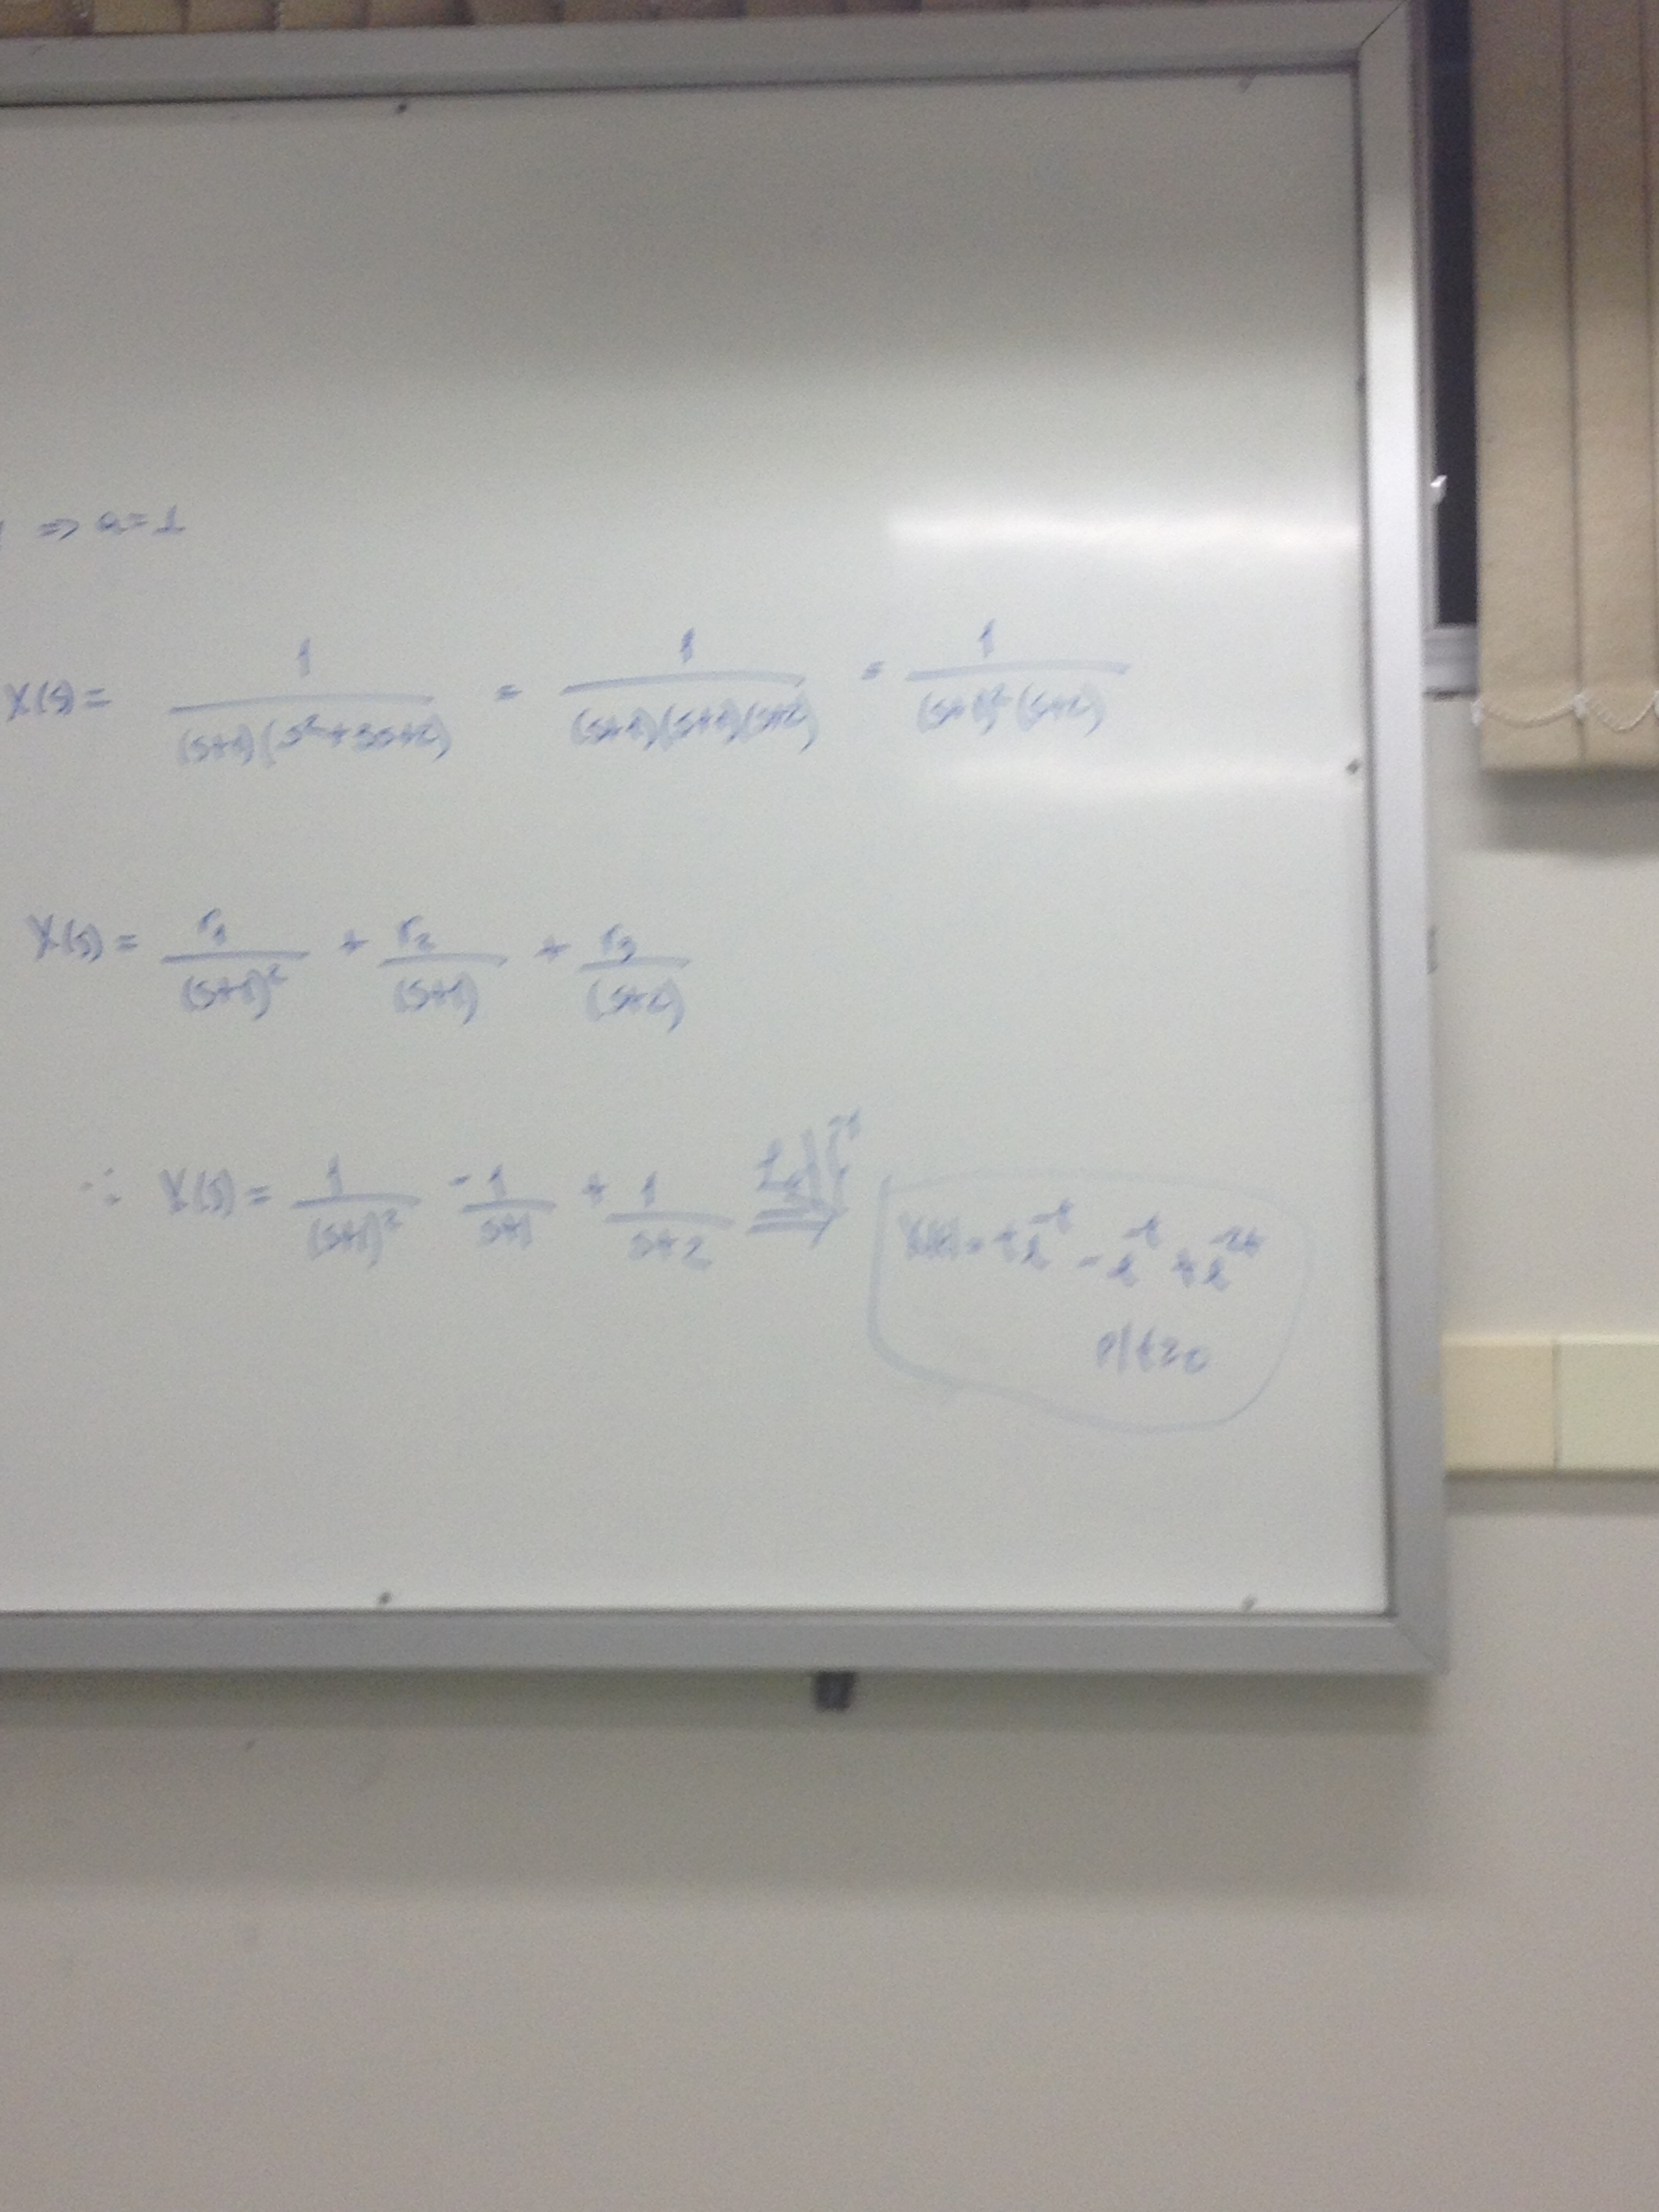 ⇒ a=1
X(s) = 1/((s+1)(s²+3s+2)) = 1/((s+1)(s+1)(s+2)) = 1/((s+1)²(s+2))
X(s) = r₁/(s+1)² + r₂/(s+1) + r₃/(s+2)
∴ X(s) = 1/(s+1)² - 1/s+1 + 1/s+2
x(t) = te^-t - e^-t + e^-2t
p/ t≥0